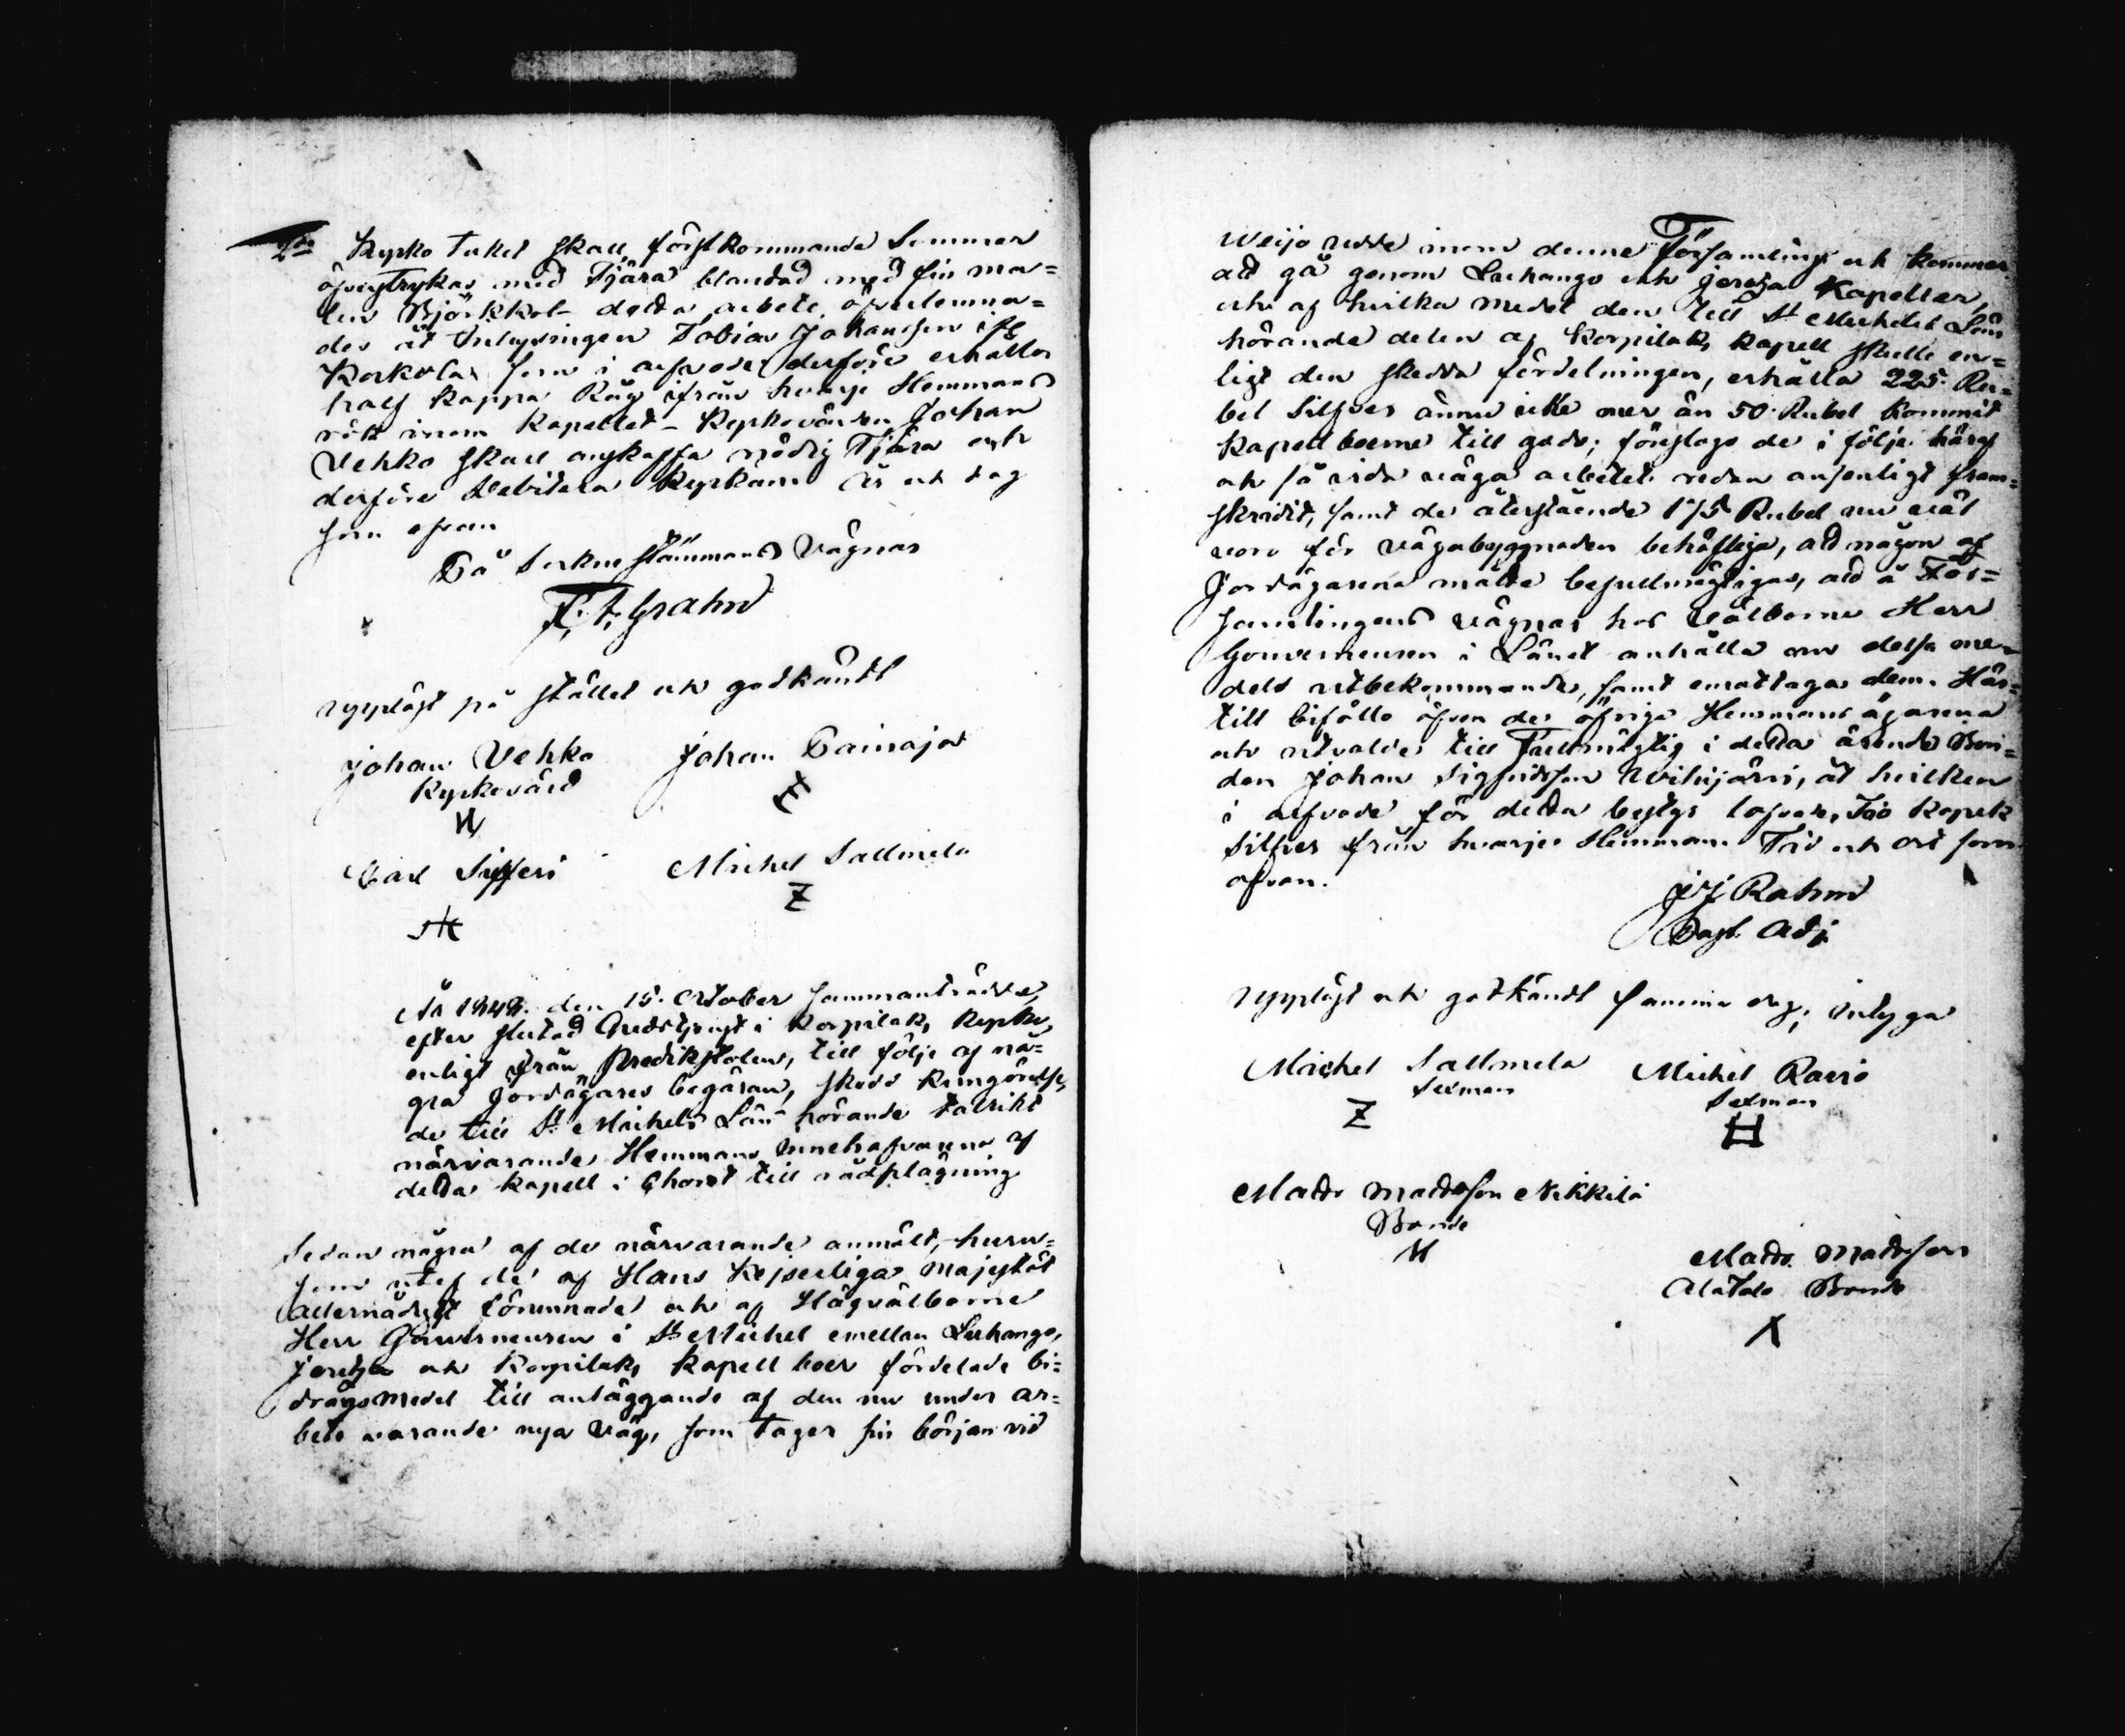 2do Kyrko taket skall förstkommande Sommar
öfverstrykas med Tjära blandad med fin ma=
len Björkkol detta arbete öfverlemna=
des åt Inhysingen Tobias Johansson ifr
Korkola som i arfvode derföre erhåller
half kappa Råg ifrån hvarje Hemmans
rök inom Kapellet – Kyrkovärden Johan
Vehko skall anskaffa nödig Tjära och
derföre debitera Kyrkan. År och dag
som ofvan
På Sockne stämmans Vägnar
Grahn
Uppläst på stället och godkändt
Johan Vehko Johan Painaja
Kyrkovärd
Carl Sipferi Michel Sallmela
Z
År 1848. den 15. October sammanträdde,
efter slutad Gudstjenst i Korpilax Kyrka,
enligt från Predikstolen, till följe af nå=
gra Jordägares begäran, skedd kungörelse,
de till St Michels Län hörande talrikt
närvarande Hemmans Innehafvarne af
detta kapell i Choret till rådplägning
Sedan några af de närvarande anmält, huru=
som utaf de af Hans Kejserliga Majestät
Allernådigst förunnade och af Högvälborne
Herr Gouverneuren i St Michel emellan Luhango,
Joutza och Korpilax kapell boer fördelade bi=
dragsmedel till anläggande af den nu under ar=
bete varande nya väg, som tager sin början vid
udde inom denne Församling och kommer
att gå genom Luhango och Joutza Kapeller,
och af hvilka medel den till St Michels Län
hörande delen af Korpilax kapell skulle en=
ligt den skedda fördelningen, erhålla 225. Ru=
bel Silfver ännu icke mer än 50 Rubel kommit
kapellboerne till godo; föreslogo de i följe häraf
och så vida väga arbetet redan ansenligt fram=
skridit, samt de återstående 175 Rubel nu
voro för vägabyggnaden behöfliga, att någon af
Jordägarena måtte befullmägtigas, att å För=
samlingens vägnar hos Välborne Herr
Gouverneuren i Länet anhålla om dessa me=
dels utbekommande, samt emottaga dem. Här=
till biföllo äfven de öfriga Hemmans ägarena
och utvalde till Fullmägtig i detta ärende Bon=
den Johan Sigfridsson Wihijärvi, åt hvilken
i arfvode för detta bestyr lofvades Tio kopek
Silfver från hvarje Hemman. Tid och ort som
ofvan.
J J Rahm
Past. Adj.
Uppläst och godkändt samma dag; intyga
Michel Sallmela Michel Ravio
Sexman Sexman
Z
Matts Mattsson Nikkilä
Bonde
Matts Mattsson
Alatalo Bonde